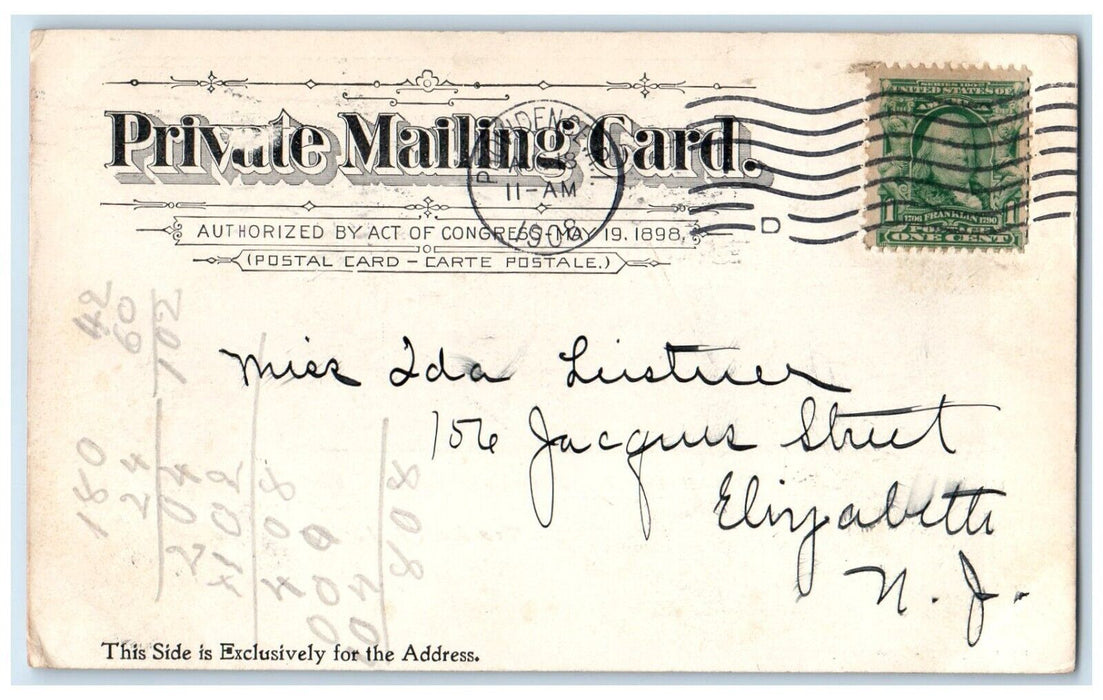 Private Mailing Card.
AUTHORIZED BY ACT OF CONGRESS-MAY 19, 1898.
(POSTAL CARD - CARTE POSTALE.)
11-AM
1908
D
UNITED STATES OF
AMERICA
1706 FRANKLIN 1790
POSTAGE
ONE CENT
Miss Ida Leistner
106 Jacques Street
Elizabeth
N. J.
42
60
102
180
24
204
This Side is Exclusively for the Address.